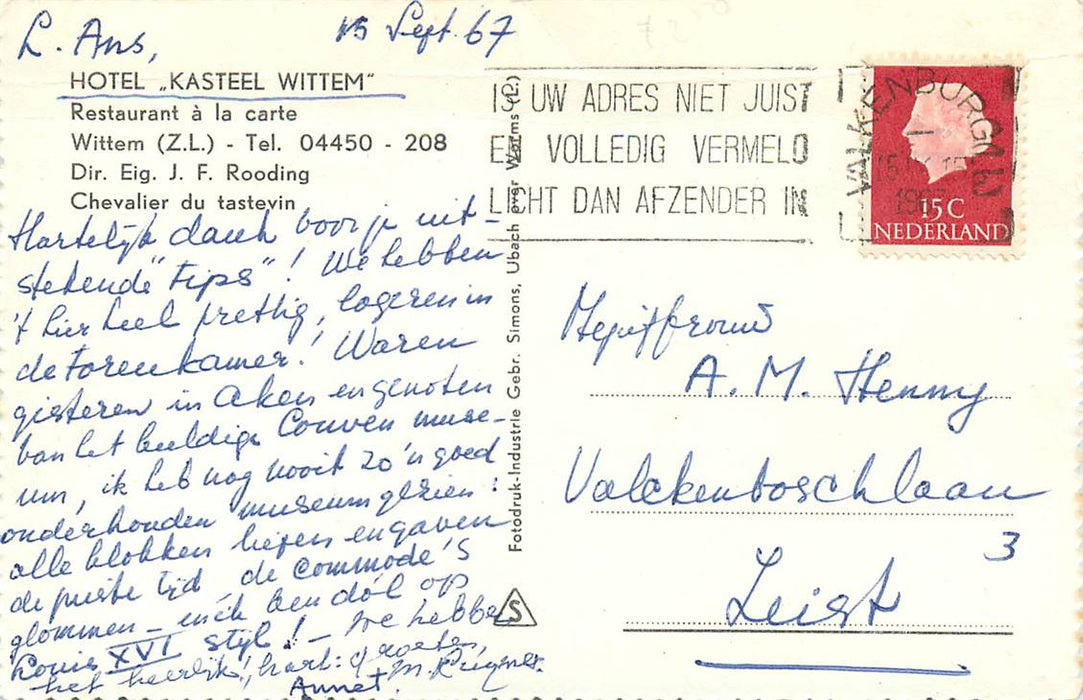 L. Ans,
15 Sept. 67
HOTEL „KASTEEL WITTEM"
Restaurant à la carte
Wittem (Z.L.) - Tel. 04450 - 208
Dir. Eig. J. F. Rooding
Chevalier du tastevin
Hartelijk dank voor je uit-
stekende "tips"! We hebben
't hier heel prettig, logeren in
de torenkamer! Waren
gisteren in Aken en genoten
van het beeldige Couven muse-
um, ik heb nog nooit zo'n goed
onderhouden museum gezien:
alle klokken liepen en gaven
de juiste tijd, de commode's
glommen – en ik ben dól op
Louis XVI stijl! – We hebben
het heerlijk! hart: groeten,
Annet + M.
Fotodruk-Industrie Gebr. Simons, Ubach over Worms (L.)
S
IS UW ADRES NIET JUIST
EN VOLLEDIG VERMELD
LICHT DAN AFZENDER IN
VALKENBURG
1967
15 C
NEDERLAND
Mejuffrouw
A. M. Henny
Valckenboschlaan
3
Zeist